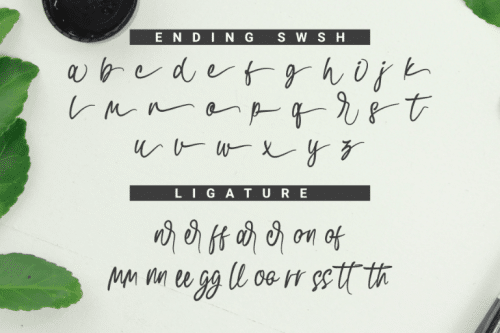 ENDING SWSH
a b c d e f g h i j k
l m n o p q r s t
u v w x y z
LIGATURE
nr er ff ar cr on of
mm nn ee gg ll oo rr ss tt th